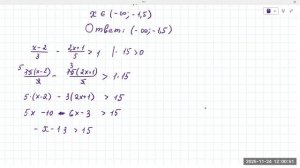 x ∈ (-∞; -1,5)
Ответ: (-∞; -1,5)
x-2/3 - 2x+1/5 > 1 | · 15 > 0
5 15(x-2)/3 - 3 15(2x+1)/5 > 1·15
5·(x-2) - 3(2x+1) > 15
5x -10 - 6x - 3 > 15
- x - 13 > 15
2025-11-24 12:00:51